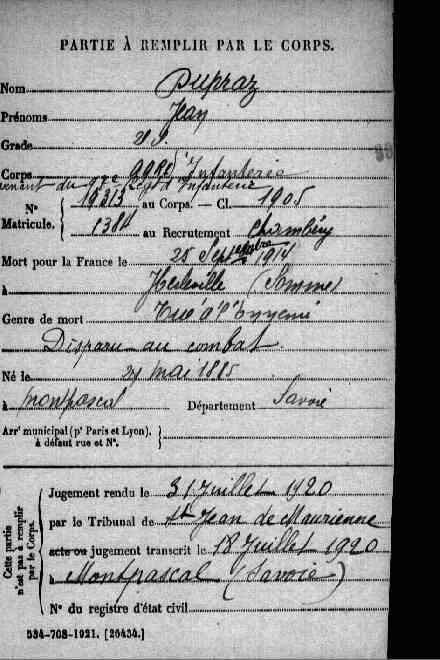 PARTIE À REMPLIR PAR LE CORPS.
Nom Dupraz
Prénoms Jean
Grade 2e
Corps 99e Infanterie
venant du 97e Régt d'Infanterie
N° 19313 au Corps. — Cl. 1905
Matricule. 1384 au Recrutement Chambéry
Mort pour la France le 25 Septembre 1914
à Herleville (Somme)
Genre de mort Tué à l'Ennemi
Disparu au combat
Né le 27 mai 1885
à Montpascal Département Savoie
Arrt municipal (pr Paris et Lyon),
à défaut rue et N°.
Cette partie
n'est pas à remplir
par le Corps.
Jugement rendu le 3 Juillet 1920
par le Tribunal de St Jean de Maurienne
acte ou jugement transcrit le 18 Juillet 1920
à Montpascal (Savoie)
N° du registre d'état civil
534-708-1921. [26434.]